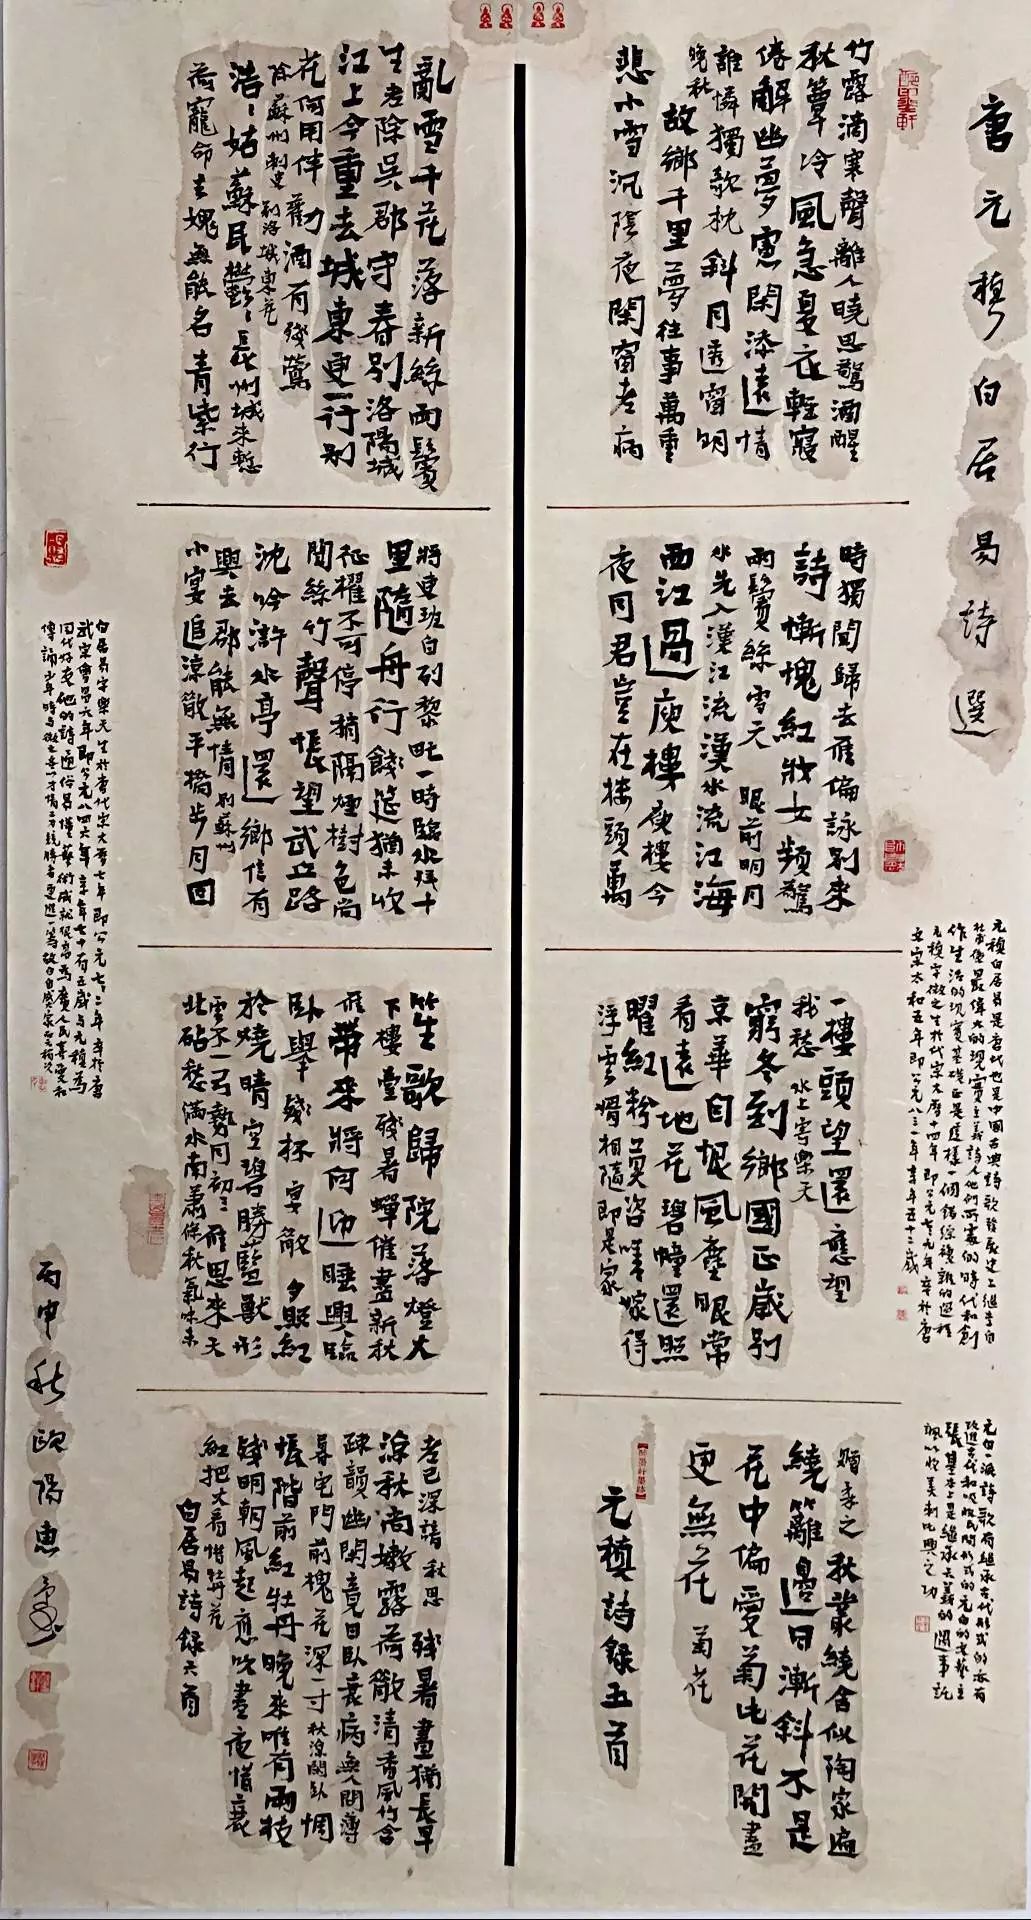 唐元稹白居易詩選
竹露滴寒聲離人曉思驚酒醒
秋簟冷風急夏衣輕寢
倦解幽夢慮閑添遠情
誰憐獨欹枕斜月透窗明
晚秋 故鄉千里夢往事萬重
悲小雪沉陰夜閑窗老病
時獨聞歸去雁偏詠別來
詩慚愧紅妝女頻驚
兩鬢絲雪天 眼前明月
水先入漢江流漢水流江海
西江過庾樓庾樓今
夜月君豈在樓頭萬
一樓頭望還應望
我愁水上寄樂天
窮冬到鄉國正歲別
京華自恨風塵眼常
看遠地花碧幢還照
曜紅粉莫咨嗟嫁得
浮雲婿相隨即是家
贈柔之 秋叢繞舍似陶家遍
繞籬邊日漸斜不是
花中偏愛菊此花開盡
更無花 菊花
元稹詩錄五首
元稹白居易是唐代也是中國古典詩歌發展史上繼李白
杜甫後最偉大的現實主義詩人他們所處的時代和創
作生活的現實基礎正是這樣一個錯綜複雜的過程
元稹字微之生於代宗大曆十四年即公元七七九年卒於唐
文宗太和五年即公元八三一年享年五十三歲
元白一派詩歌有繼承古代形式的亦有
改進古代和吸收民間形式的元白的文藝主
張基本上是繼承的因事託
諷以收美刺比興之功
亂雪千花落新絲兩鬢
生老除吳郡守春別洛陽城
江上今重去城東更一行別
花何用伴勸酒有殘鶯
除蘇州刺史別洛城東花
浩浩姑蘇民鬱鬱長州城來慙
荷寵命去愧無能名青紫行
將吏班白列黎甿一時臨水拜十
里隨舟行餞筵猶未收
征櫂不可停稍隔煙樹色尚
聞絲竹聲悵望武丘路
沈吟滸水亭還鄉信有
興去郡能無情 別蘇州
小宴追涼散平橋步月回
笙歌歸院落燈火
下樓臺殘暑蟬催盡新秋
雁帶來將何迎睡興臨
臥舉殘杯 宴散 夕照紅
於燒晴空碧勝藍獸形
雲不一弓勢月初三雁思來天
北砧愁滿水南蕭條秋氣味未
老已深諳 秋思 殘暑晝猶長早
涼秋尚嫩露荷散清香風竹含
疎韻幽閑竟日臥衰病無人問薄
暮宅門前槐花深一寸 秋涼閑臥 惆
悵階前紅牡丹晚來唯有兩枝
殘明朝風起應吹盡夜惜衰
紅把火看 惜牡丹花
白居易詩錄六首
白居易字樂天生於唐代宗大曆七年即公元七七二年卒於唐
武宗會昌六年即公元八四六年享年七十有五歲與元稹為
同代好友他的詩通俗易懂藝術成就很高為廣大人民喜愛和
傳誦
丙申秋歐陽惠